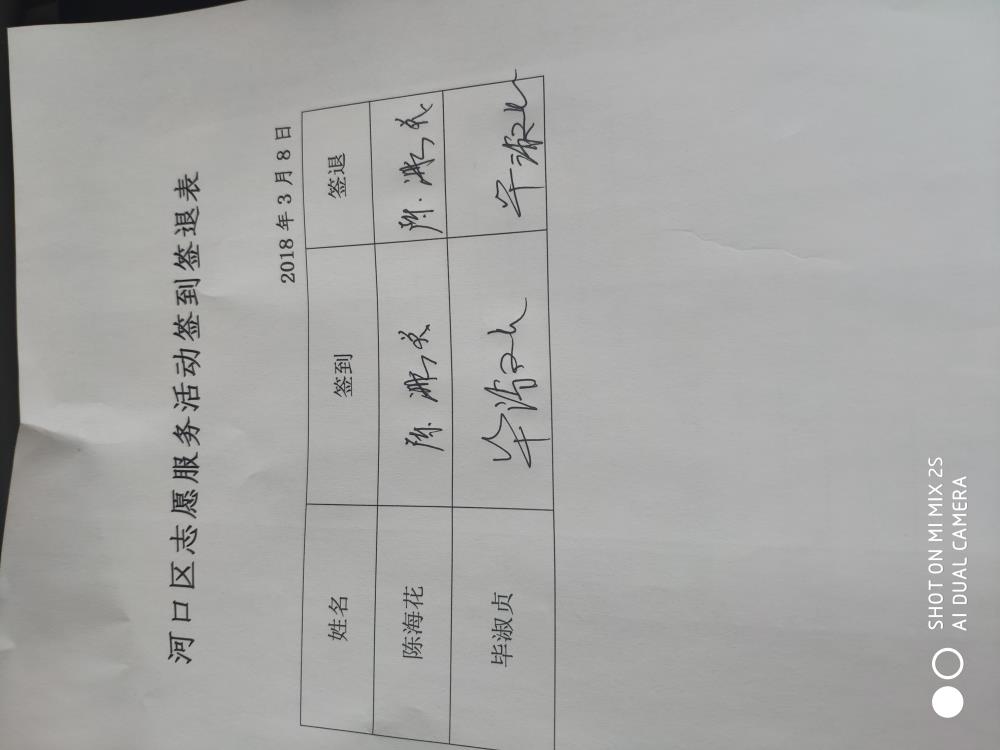 河口区志愿服务活动签到签退表
2018年3月8日
姓名 签到 签退
陈海花 陈海花 陈海花
毕淑贞 毕淑贞 毕淑贞
SHOT ON MI MIX 2S
AI DUAL CAMERA